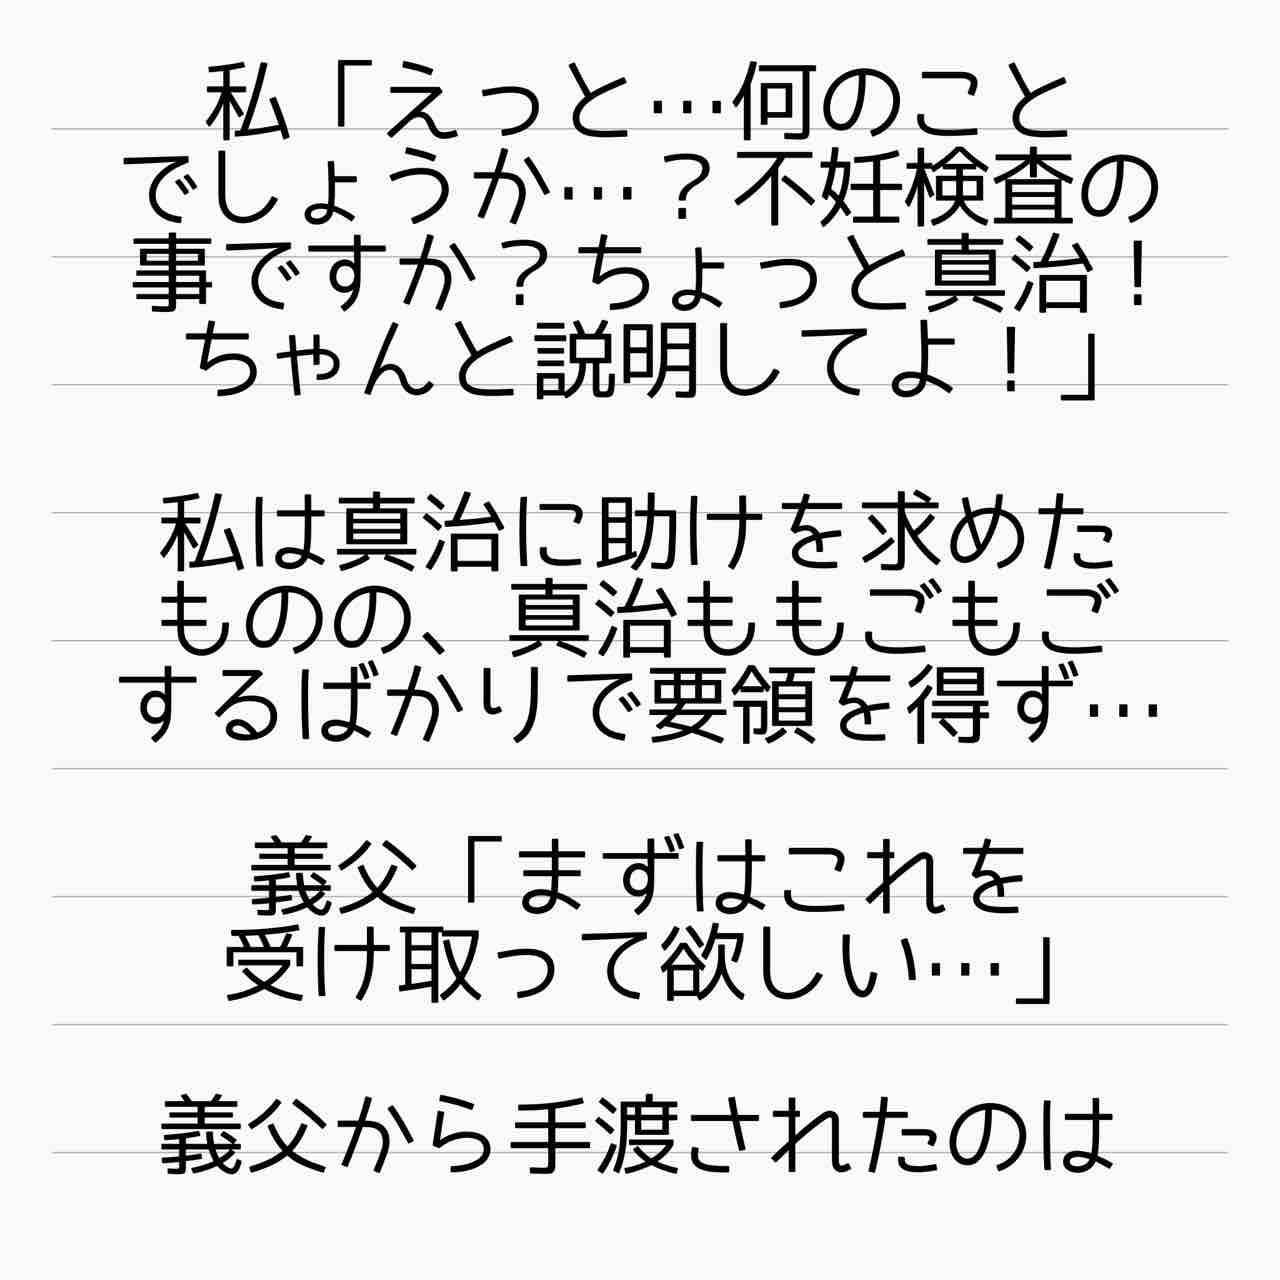 私「えっと…何のこと
でしょうか…？不妊検査の
事ですか？ちょっと真治！
ちゃんと説明してよ！」
私は真治に助けを求めた
ものの、真治ももごもご
するばかりで要領を得ず…
義父「まずはこれを
受け取って欲しい…」
義父から手渡されたのは